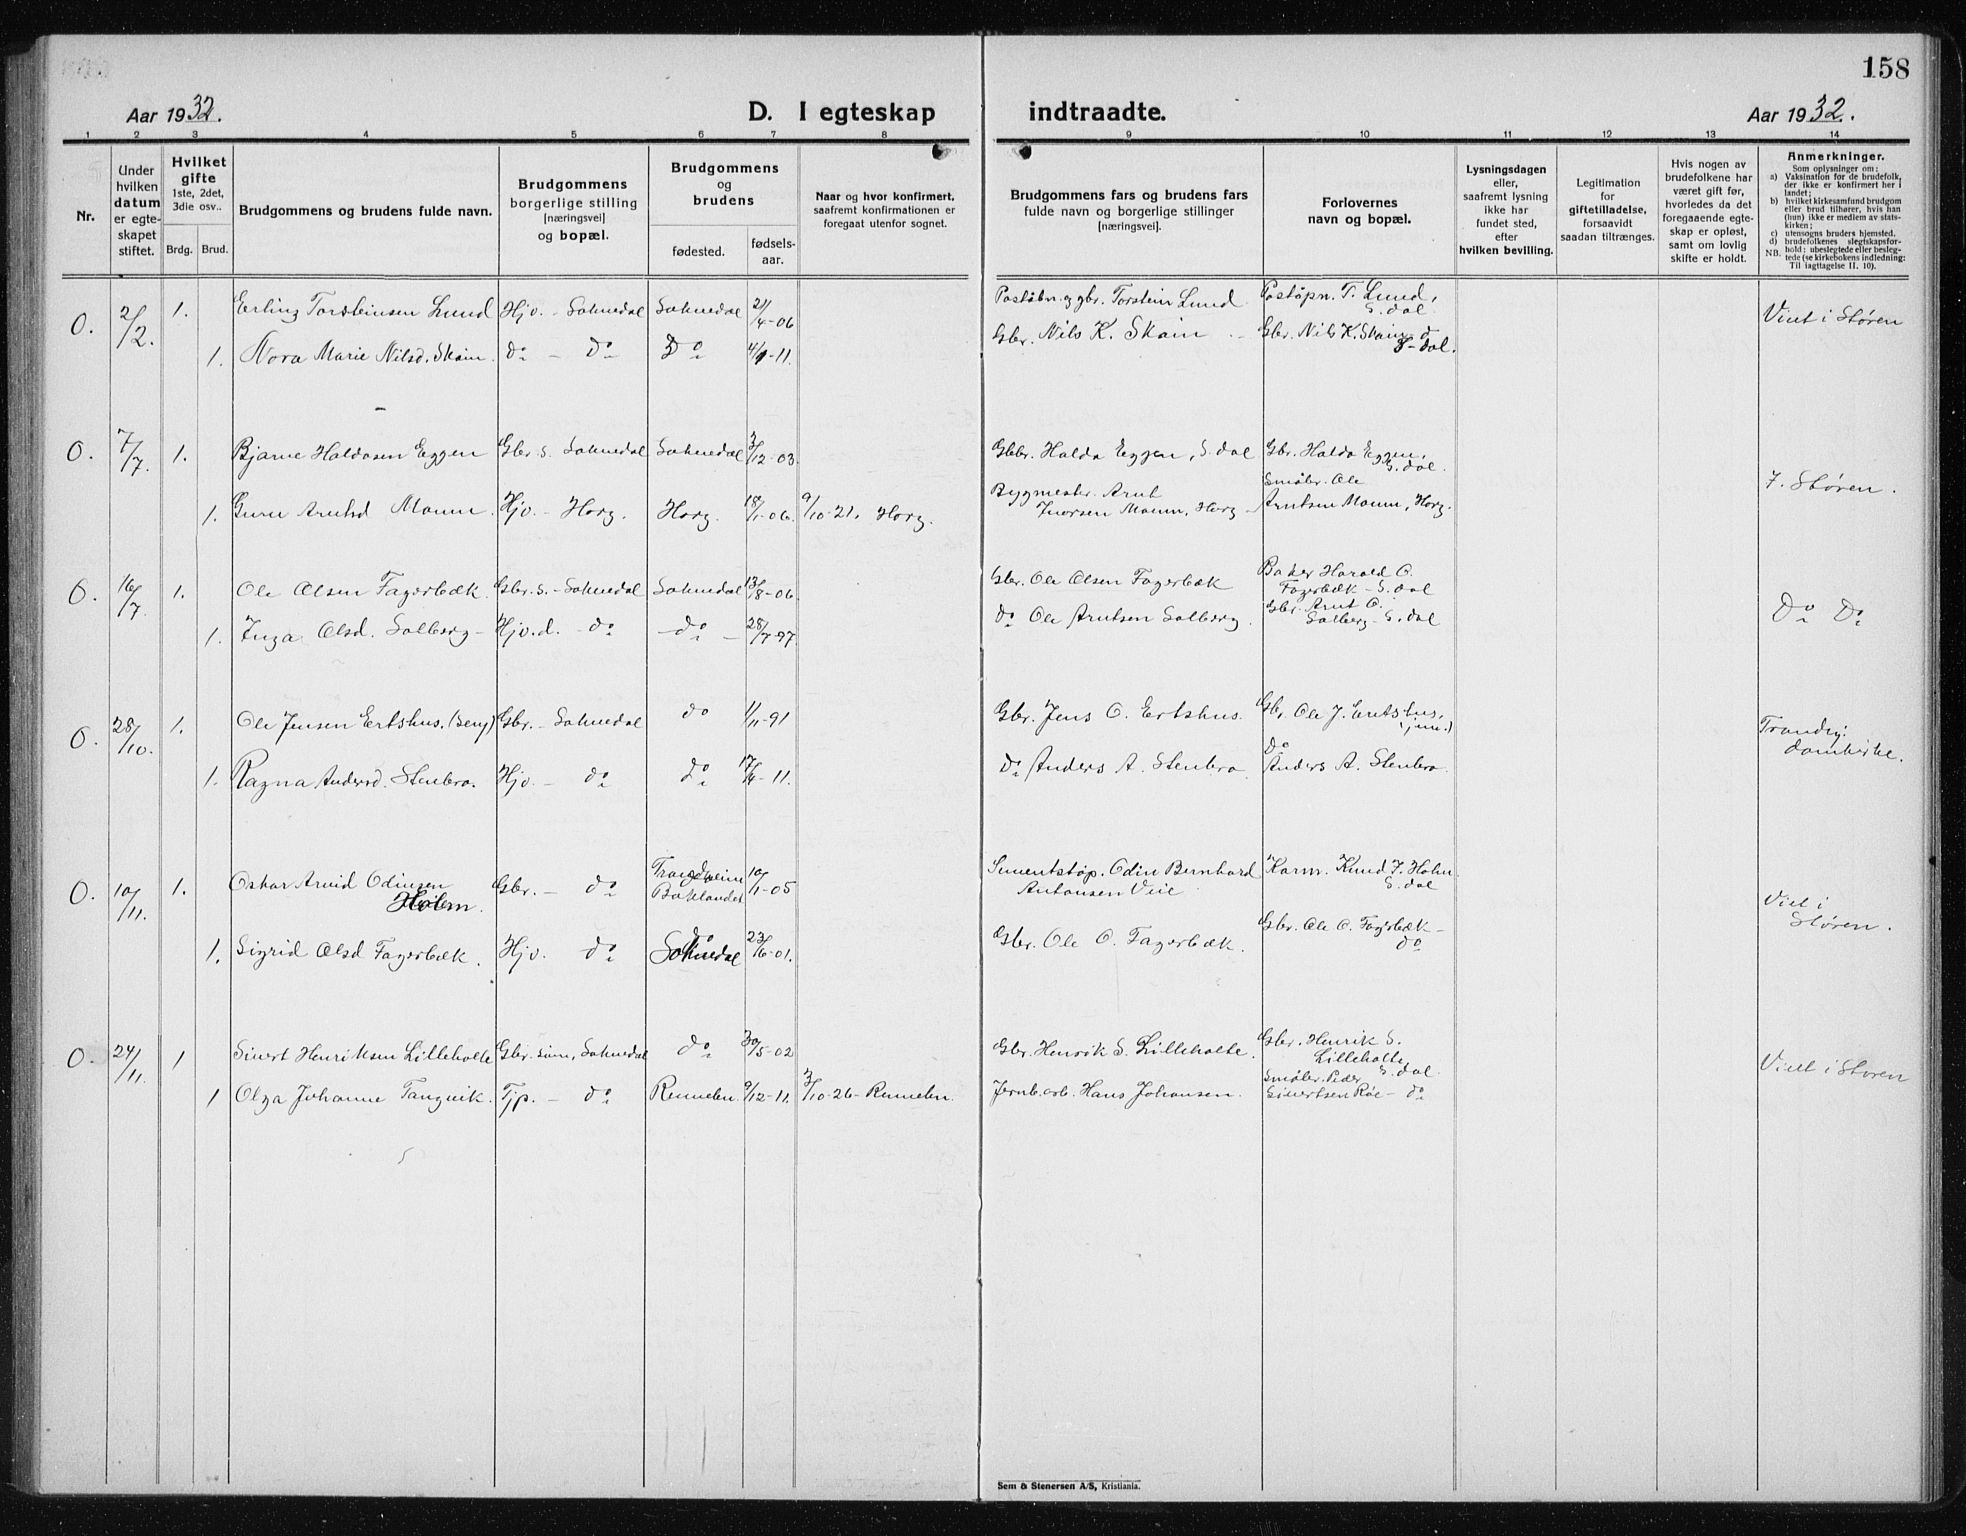 158
Aar 1932.
D. I egteskap
indtraadte.
Aar 1932.
1 2 3 4 5 6 7 8 9 10 11 12 13 14
Nr.
Under hvilken datum er egteskapet stiftet.
Hvilket gifte
1ste, 2det, 3die osv..
Brdg. Brud.
Brudgommens og brudens fulde navn.
Brudgommens borgerlige stilling [næringsvei] og bopæl.
Brudgommens og brudens
fødested.
fødselsaar.
Naar og hvor konfirmert, saafremt konfirmationen er foregaat utenfor sognet.
Brudgommens fars og brudens fars fulde navn og borgerlige stillinger [næringsvei].
Forlovernes navn og bopæl.
Lysningsdagen eller, saafremt lysning ikke har fundet sted, efter hvilken bevilling.
Legitimation for giftetilladelse, forsaavidt saadan tiltrænges.
Hvis nogen av brudefolkene har været gift før, hvorledes da det foregaaende egteskap er opløst, samt om lovlig skifte er holdt.
Anmerkninger.
Som oplysninger om:
a) Vaksination for de brudefolk, der ikke er konfirmert her i landet;
b) hvilket kirkesamfund brudgom eller brud tilhører, hvis han (hun) ikke er medlem av statskirken;
c) utensogns bruders hjemsted.
d) brudefolkenes slegtskapsforhold: ubeslegtede eller beslegtede (se kirkebokens indledning: NB. Til iagttagelse II. 10).
0. 2/2. 1. Erling Torsteinsen Lund Hjv. - Soknedal Soknedal 21/4-06 Poståbn. og gbr. Torstein Lund Poståpn. T. Lund, S.dal. Viet i Støren
1. Nora Marie Nilsd. Skain. do - do do 4/1-11. Gbr. Nils K. Skain Gbr. Nils K. Skain S-dal.
0. 7/7. 1. Bjarne Haldosen Eggen Gbr. s. Soknedal Soknedal 3/12-03 Gbr. Haldo Eggen, S.dal Gbr. Haldo Eggen, S.dal. F. Støren.
1. Guru Arntsd Moum. Hjv. - Horg. Horg. 18/1-06. 9/10-21. Horg. Bygmester Arnt Ivarsen Moum, Horg Småbr. Ole Arntsen Moum, Horg.
0. 16/7. 1. Ole Olsen Fagerbæk. Gbr. s. - Soknedal Soknedal 13/8-06. Gbr. Ole Olsen Fagerbæk Baker Harald O. Fagerbæk - S.dal do do
1. Inga Olsd. Solberg - Hjv. d. - do - do - 28/7-97. do Ole Arntsen Solberg. Gbr. Arnt O. Solberg - S.dal
0. 28/10. 1. Ole Jensen Ertshus. (Seny) Gbr. - Soknedal do 1/11-91 Gbr. Jens O. Ertshus. Gbr. Ole J. Ertshus, (jun.) Trondhj: domkirke.
1. Ragna Andersd. Stenbro. Hjv. - do do 17/4-11. do Anders A. Stenbro do Anders A. Stenbro.
0. 10/11. 1. Oskar Arvid Odinsen Holem. Gbr. - do Trondheim Baklandet 10/1-05 Sementstøp. Odin Bernhard Antonsen Viie Karm. Knud J. Holm S.dal Viet i Støren.
1. Sigrid Olsd Fagerbæk. Hjv. do Soknedal 23/6-01. Gbr. Ole O. Fagerbæk. Gbr. Ole O. Fagerbæk - do
0. 24/11. 1 Sivert Henriksen Lillebolte Gbr. søn, Soknedal do 30/5-02 Gbr. Henrik S. Lillebolte. Gbr. Henrik S. Lillebolte, S.dal. Viet i Støren
1 Olga Johanne Tangvik. Tjp. - do Rennebu. 9/12-11. 3/10-26 - Rennebu. Jernb.arb. Hans Johansen. Småbr. Peder Sivertsen Røe - do
Sem & Stenersen A/S, Kristiania.